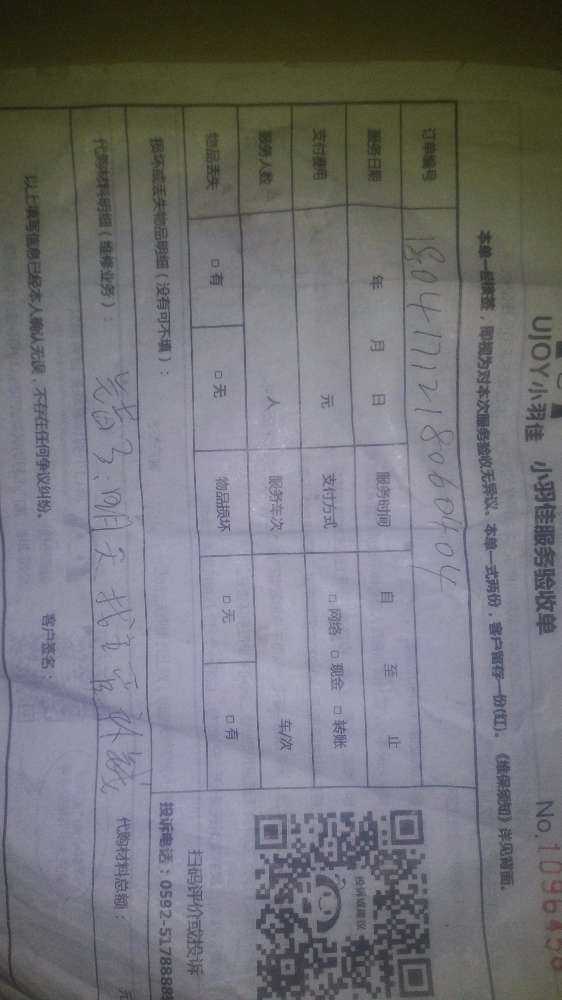 UJOY小羽佳 小羽佳服务验收单
No.1096458
本单一经签签，即视为对本次服务验收无异议。本单一式两份，客户留存一份(红)。《维保须知》详见背面。
订单编号 180417121806 0404
服务日期 年 月 日 服务时间 自 至 止
支付费用 元 支付方式 □网络 □现金 □转账
服务人数 人 服务车次 车/次
物品丢失 □有 □无 物品损坏 □无 □有
损坏或丢失物品明细（没有可不填）：
扫码评价或投诉
投诉电话：0592-5178888
代购材料明细（维修业务）： 代购材料总额： 元
以上填写信息已经本人确认无误，不存在任何争议纠纷。 客户签名：